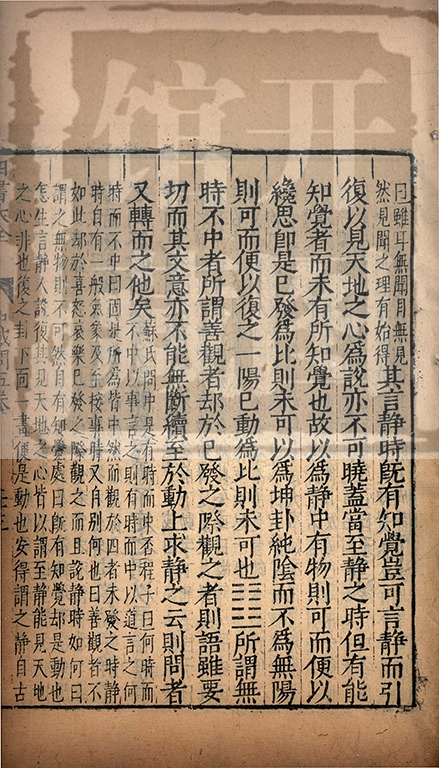 曰雖耳無聞目無見
然見聞之理有始得
其言靜時旣有知覺豈可言靜而引
復以見天地之心爲說亦不可曉蓋當至靜之時但有能
知覺者而未有所知覺也故以爲靜中有物則可而便以
纔思卽是已發爲比則未可以爲坤卦純陰而不爲無陽
則可而便以復之一陽已動爲比則未可也☷☳所謂無
時不中者所謂善觀者却於已發之際觀之者則語雖要
切而其文意亦不能無斷續至於動上求靜之云則問者
又轉而之他矣
蘇氏問中是有時而中否程子曰何時而
不中以事言之則有時而中以道言之何
時而不中曰固是所爲皆中然而觀於四者未發之時靜
時自有一般氣象及至接事時又自別何也曰善觀者不
如此却於喜怒哀樂已發之際觀之而且說靜時如何曰
謂之無物則不可然自有知覺處曰旣有知覺却是動也
怎生言靜人說復其見天地之心皆以謂至靜能見天地
之心非也復之卦下面一畫便是動也安得謂之靜自古